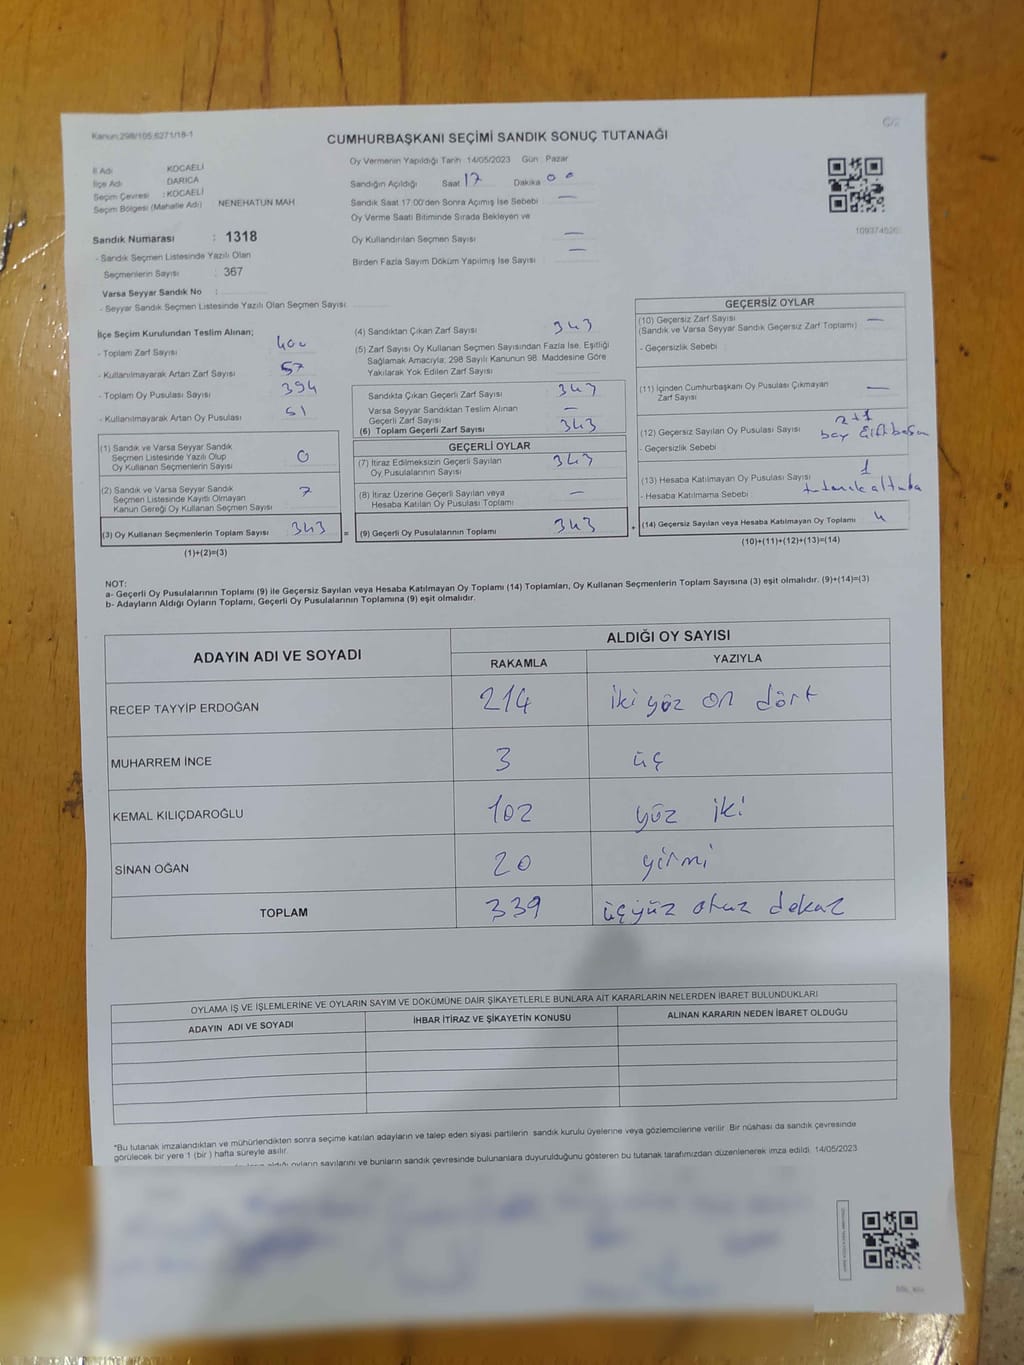 Kanun:298/105;6271/18-1
CUMHURBAŞKANI SEÇİMİ SANDIK SONUÇ TUTANAĞI
İl Adı : KOCAELİ
İlçe Adı : DARICA
Seçim Çevresi : KOCAELİ
Seçim Bölgesi (Mahalle Adı) : NENEHATUN MAH
Sandık Numarası : 1318
- Sandık Seçmen Listesinde Yazılı Olan
Seçmenlerin Sayısı : 367
Varsa Seyyar Sandık No :
- Seyyar Sandık Seçmen Listesinde Yazılı Olan Seçmen Sayısı:
Oy Vermenin Yapıldığı Tarih :14/05/2023 Gün : Pazar
Sandığın Açıldığı Saat 17 Dakika 00
Sandık Saat 17.00'den Sonra Açımış İse Sebebi —
Oy Verme Saati Bitiminde Sırada Bekleyen ve
Oy Kullandırılan Seçmen Sayısı —
Birden Fazla Sayım Döküm Yapılmış İse Sayısı —
İlçe Seçim Kurulundan Teslim Alınan;
- Toplam Zarf Sayısı 400
- Kullanılmayarak Artan Zarf Sayısı 57
- Toplam Oy Pusulası Sayısı 394
- Kullanılmayarak Artan Oy Pusulası 51
(1) Sandık ve Varsa Seyyar Sandık
Seçmen Listesinde Yazılı Olup
Oy Kullanan Seçmenlerin Sayısı 0
(2) Sandık ve Varsa Seyyar Sandık
Seçmen Listesinde Kayıtlı Olmayan
Kanun Gereği Oy Kullanan Seçmen Sayısı 7
(3) Oy Kullanan Seçmenlerin Toplam Sayısı 343
(1)+(2)=(3)
(4) Sandıktan Çıkan Zarf Sayısı 343
(5) Zarf Sayısı Oy Kullanan Seçmen Sayısından Fazla İse, Eşitliği
Sağlamak Amacıyla; 298 Sayılı Kanunun 98. Maddesine Göre
Yakılarak Yok Edilen Zarf Sayısı
Sandıkta Çıkan Geçerli Zarf Sayısı 343
Varsa Seyyar Sandıktan Teslim Alınan
Geçerli Zarf Sayısı —
(6) Toplam Geçerli Zarf Sayısı 343
GEÇERLİ OYLAR
(7) İtiraz Edilmeksizin Geçerli Sayılan
Oy Pusulalarının Sayısı 343
(8) İtiraz Üzerine Geçerli Sayılan veya
Hesaba Katılan Oy Pusulası Toplamı —
= (9) Geçerli Oy Pusulalarının Toplamı 343 +
GEÇERSİZ OYLAR
(10) Geçersiz Zarf Sayısı
(Sandık ve Varsa Seyyar Sandık Geçersiz Zarf Toplamı) —
- Geçersizlik Sebebi
(11) İçinden Cumhurbaşkanı Oy Pusulası Çıkmayan
Zarf Sayısı —
(12) Geçersiz Sayılan Oy Pusulası Sayısı 2+1
- Geçersizlik Sebebi
(13) Hesaba Katılmayan Oy Pusulası Sayısı 1
- Hesaba Katılmama Sebebi
(14) Geçersiz Sayılan veya Hesaba Katılmayan Oy Toplamı 4
(10)+(11)+(12)+(13)=(14)
NOT:
a- Geçerli Oy Pusulalarının Toplamı (9) ile Geçersiz Sayılan veya Hesaba Katılmayan Oy Toplamı (14) Toplamları, Oy Kullanan Seçmenlerin Toplam Sayısına (3) eşit olmalıdır. (9)+(14)=(3)
b- Adayların Aldığı Oyların Toplamı, Geçerli Oy Pusulalarının Toplamına (9) eşit olmalıdır.
ADAYIN ADI VE SOYADI ALDIĞI OY SAYISI
RAKAMLA YAZIYLA
RECEP TAYYİP ERDOĞAN 214 iki yüz on dört
MUHARREM İNCE 3 üç
KEMAL KILIÇDAROĞLU 102 yüz iki
SİNAN OĞAN 20 yirmi
TOPLAM 339 üçyüz otuz dokuz
OYLAMA İŞ VE İŞLEMLERİNE VE OYLARIN SAYIM VE DÖKÜMÜNE DAİR ŞİKAYETLERLE BUNLARA AİT KARARLARIN NELERDEN İBARET BULUNDUKLARI
ADAYIN ADI VE SOYADI İHBAR İTİRAZ VE ŞİKAYETİN KONUSU ALINAN KARARIN NEDEN İBARET OLDUĞU
*Bu tutanak imzalandıktan ve mühürlendikten sonra seçime katılan adayların ve talep eden siyasi partilerin sandık kurulu üyelerine veya gözlemcilerine verilir. Bir nüshası da sandık çevresinde
görülecek bir yere 1 (bir ) hafta süreyle asılır.
aldığı oyların sayılarını ve bunların sandık çevresinde bulunanlara duyurulduğunu gösteren bu tutanak tarafımızdan düzenlenerek imza edildi. 14/05/2023